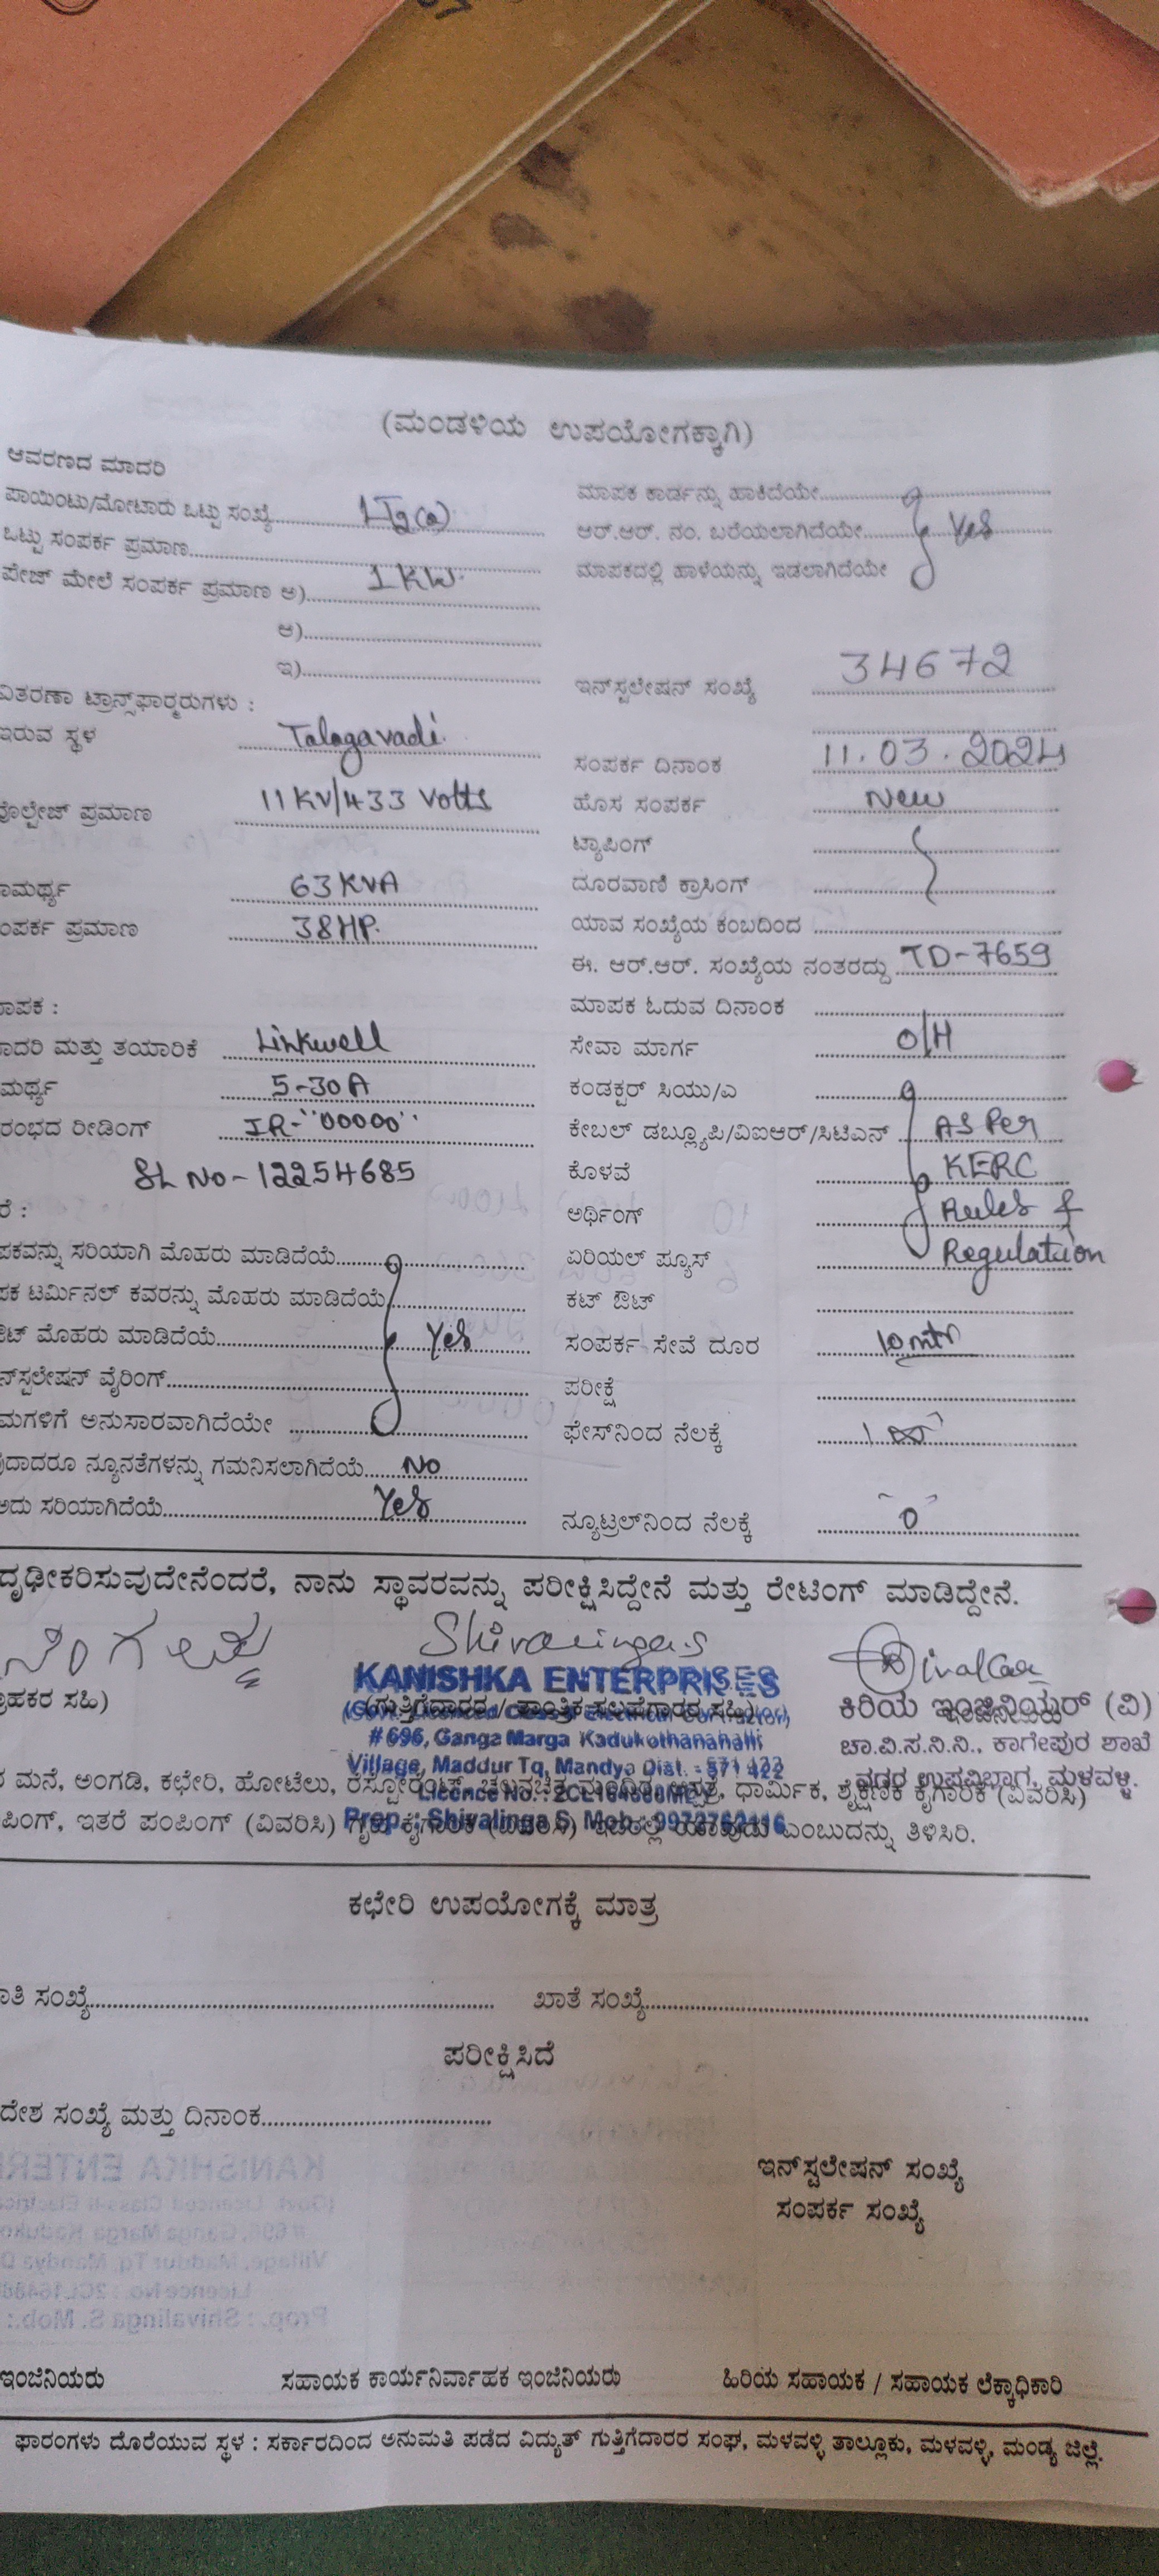 (ಮಂಡಳಿಯ ಉಪಯೋಗಕ್ಕಾಗಿ)
ಆವರಣದ ಮಾದರಿ
ಪಾಯಿಂಟು/ಮೋಟಾರು ಒಟ್ಟು ಸಂಖ್ಯೆ LT2(a)
ಒಟ್ಟು ಸಂಪರ್ಕ ಪ್ರಮಾಣ
ಪೇಜ್ ಮೇಲೆ ಸಂಪರ್ಕ ಪ್ರಮಾಣ ಅ) 1 KW
ಆ)
ಇ)
ವಿತರಣಾ ಟ್ರಾನ್ಸ್‌ಫಾರ್ಮರುಗಳು :
ಇರುವ ಸ್ಥಳ Talagavadi
ವೊಲ್ಟೇಜ್ ಪ್ರಮಾಣ 11KV/433 Volts
ಾಮರ್ಥ್ಯ 63KVA
ಂಪರ್ಕ ಪ್ರಮಾಣ 38HP.
ಾಪಕ :
ಾದರಿ ಮತ್ತು ತಯಾರಿಕೆ Linkwell
ಮರ್ಥ್ಯ 5-30A
ರಂಭದ ರೀಡಿಂಗ್ IR-"00000"
SL No-12254685
ರೆ :
ಪಕವನ್ನು ಸರಿಯಾಗಿ ಮೊಹರು ಮಾಡಿದೆಯೆ
ಪಕ ಟರ್ಮಿನಲ್ ಕವರನ್ನು ಮೊಹರು ಮಾಡಿದೆಯೆ
ಟ್ ಮೊಹರು ಮಾಡಿದೆಯೆ Yes
ನ್‌ಸ್ಟಲೇಷನ್ ವೈರಿಂಗ್
ಮಗಳಿಗೆ ಅನುಸಾರವಾಗಿದೆಯೇ
ದಾದರೂ ನ್ಯೂನತೆಗಳನ್ನು ಗಮನಿಸಲಾಗಿದೆಯೆ No
ಅದು ಸರಿಯಾಗಿದೆಯೆ Yes
ಮಾಪಕ ಕಾರ್ಡನ್ನು ಹಾಕಿದೆಯೇ
ಆರ್.ಆರ್. ನಂ. ಬರೆಯಲಾಗಿದೆಯೇ Yes
ಮಾಪಕದಲ್ಲಿ ಹಾಳೆಯನ್ನು ಇಡಲಾಗಿದೆಯೇ
ಇನ್‌ಸ್ಟಲೇಷನ್ ಸಂಖ್ಯೆ 34672
ಸಂಪರ್ಕ ದಿನಾಂಕ 11.03.2024
ಹೊಸ ಸಂಪರ್ಕ New
ಟ್ಯಾಪಿಂಗ್
ದೂರವಾಣಿ ಕ್ರಾಸಿಂಗ್
ಯಾವ ಸಂಖ್ಯೆಯ ಕಂಬದಿಂದ
ಈ. ಆರ್.ಆರ್. ಸಂಖ್ಯೆಯ ನಂತರದ್ದು TD-7659
ಮಾಪಕ ಓದುವ ದಿನಾಂಕ
ಸೇವಾ ಮಾರ್ಗ O/H
ಕಂಡಕ್ಟರ್ ಸಿಯು/ಎ
ಕೇಬಲ್ ಡಬ್ಲ್ಯೂಪಿ/ವಿಐಆರ್/ಸಿಟಿಎನ್ AS Per
ಕೊಳವೆ KERC
ಅರ್ಥಿಂಗ್ Rules &
ಏರಿಯಲ್ ಫ್ಯೂಸ್ Regulation
ಕಟ್ ಔಟ್
ಸಂಪರ್ಕ ಸೇವೆ ದೂರ 10 mtr
ಪರೀಕ್ಷೆ
ಫೇಸ್‌ನಿಂದ ನೆಲಕ್ಕೆ
ನ್ಯೂಟ್ರಲ್‌ನಿಂದ ನೆಲಕ್ಕೆ 0
ದೃಢೀಕರಿಸುವುದೇನೆಂದರೆ, ನಾನು ಸ್ಥಾವರವನ್ನು ಪರೀಕ್ಷಿಸಿದ್ದೇನೆ ಮತ್ತು ರೇಟಿಂಗ್ ಮಾಡಿದ್ದೇನೆ.
Shivalinga S
ರಾಹಕರ ಸಹಿ)
KANISHKA ENTERPRISES
(ಗುತ್ತಿಗೆದಾರರ / ತಾಂತ್ರಿಕ ಸಲಹೆಗಾರರ ಸಹಿ)
# 696, Ganga Marga Kadukothanahalli
Village, Maddur Tq, Mandya Dist. - 571 422
Prop. : Shivalinga S. Mob.: 9972762116
ಕಿರಿಯ ಇಂಜಿನಿಯರ್ (ವಿ)
ಚಾ.ವಿ.ಸ.ನಿ.ನಿ., ಕಾಗೇಪುರ ಶಾಖೆ
ನಗರ ಉಪವಿಭಾಗ, ಮಳವಳ್ಳಿ.
ರ ಮನೆ, ಅಂಗಡಿ, ಕಛೇರಿ, ಹೋಟೆಲು, ರೆಸ್ಟೋರೆಂಟ್, ಚಲನಚಿತ್ರ ಮಂದಿರ, ಆಸ್ಪತ್ರೆ, ಧಾರ್ಮಿಕ, ಶೈಕ್ಷಣಿಕ ಕೈಗಾರಿಕೆ (ವಿವರಿಸಿ)
ಪಿಂಗ್, ಇತರೆ ಪಂಪಿಂಗ್ (ವಿವರಿಸಿ) ಗೃಹ ಕೈಗಾರಿಕೆ (ವಿವರಿಸಿ) ಇದರಲ್ಲಿ ಯಾವುದು ಎಂಬುದನ್ನು ತಿಳಿಸಿರಿ.
ಕಛೇರಿ ಉಪಯೋಗಕ್ಕೆ ಮಾತ್ರ
ಾತಿ ಸಂಖ್ಯೆ ಖಾತೆ ಸಂಖ್ಯೆ
ಪರೀಕ್ಷಿಸಿದೆ
ದೇಶ ಸಂಖ್ಯೆ ಮತ್ತು ದಿನಾಂಕ
ಇನ್‌ಸ್ಟಲೇಷನ್ ಸಂಖ್ಯೆ
ಸಂಪರ್ಕ ಸಂಖ್ಯೆ
ಇಂಜಿನಿಯರು ಸಹಾಯಕ ಕಾರ್ಯನಿರ್ವಾಹಕ ಇಂಜಿನಿಯರು ಹಿರಿಯ ಸಹಾಯಕ / ಸಹಾಯಕ ಲೆಕ್ಕಾಧಿಕಾರಿ
ಫಾರಂಗಳು ದೊರೆಯುವ ಸ್ಥಳ : ಸರ್ಕಾರದಿಂದ ಅನುಮತಿ ಪಡೆದ ವಿದ್ಯುತ್ ಗುತ್ತಿಗೆದಾರರ ಸಂಘ, ಮಳವಳ್ಳಿ ತಾಲ್ಲೂಕು, ಮಳವಳ್ಳಿ, ಮಂಡ್ಯ ಜಿಲ್ಲೆ.